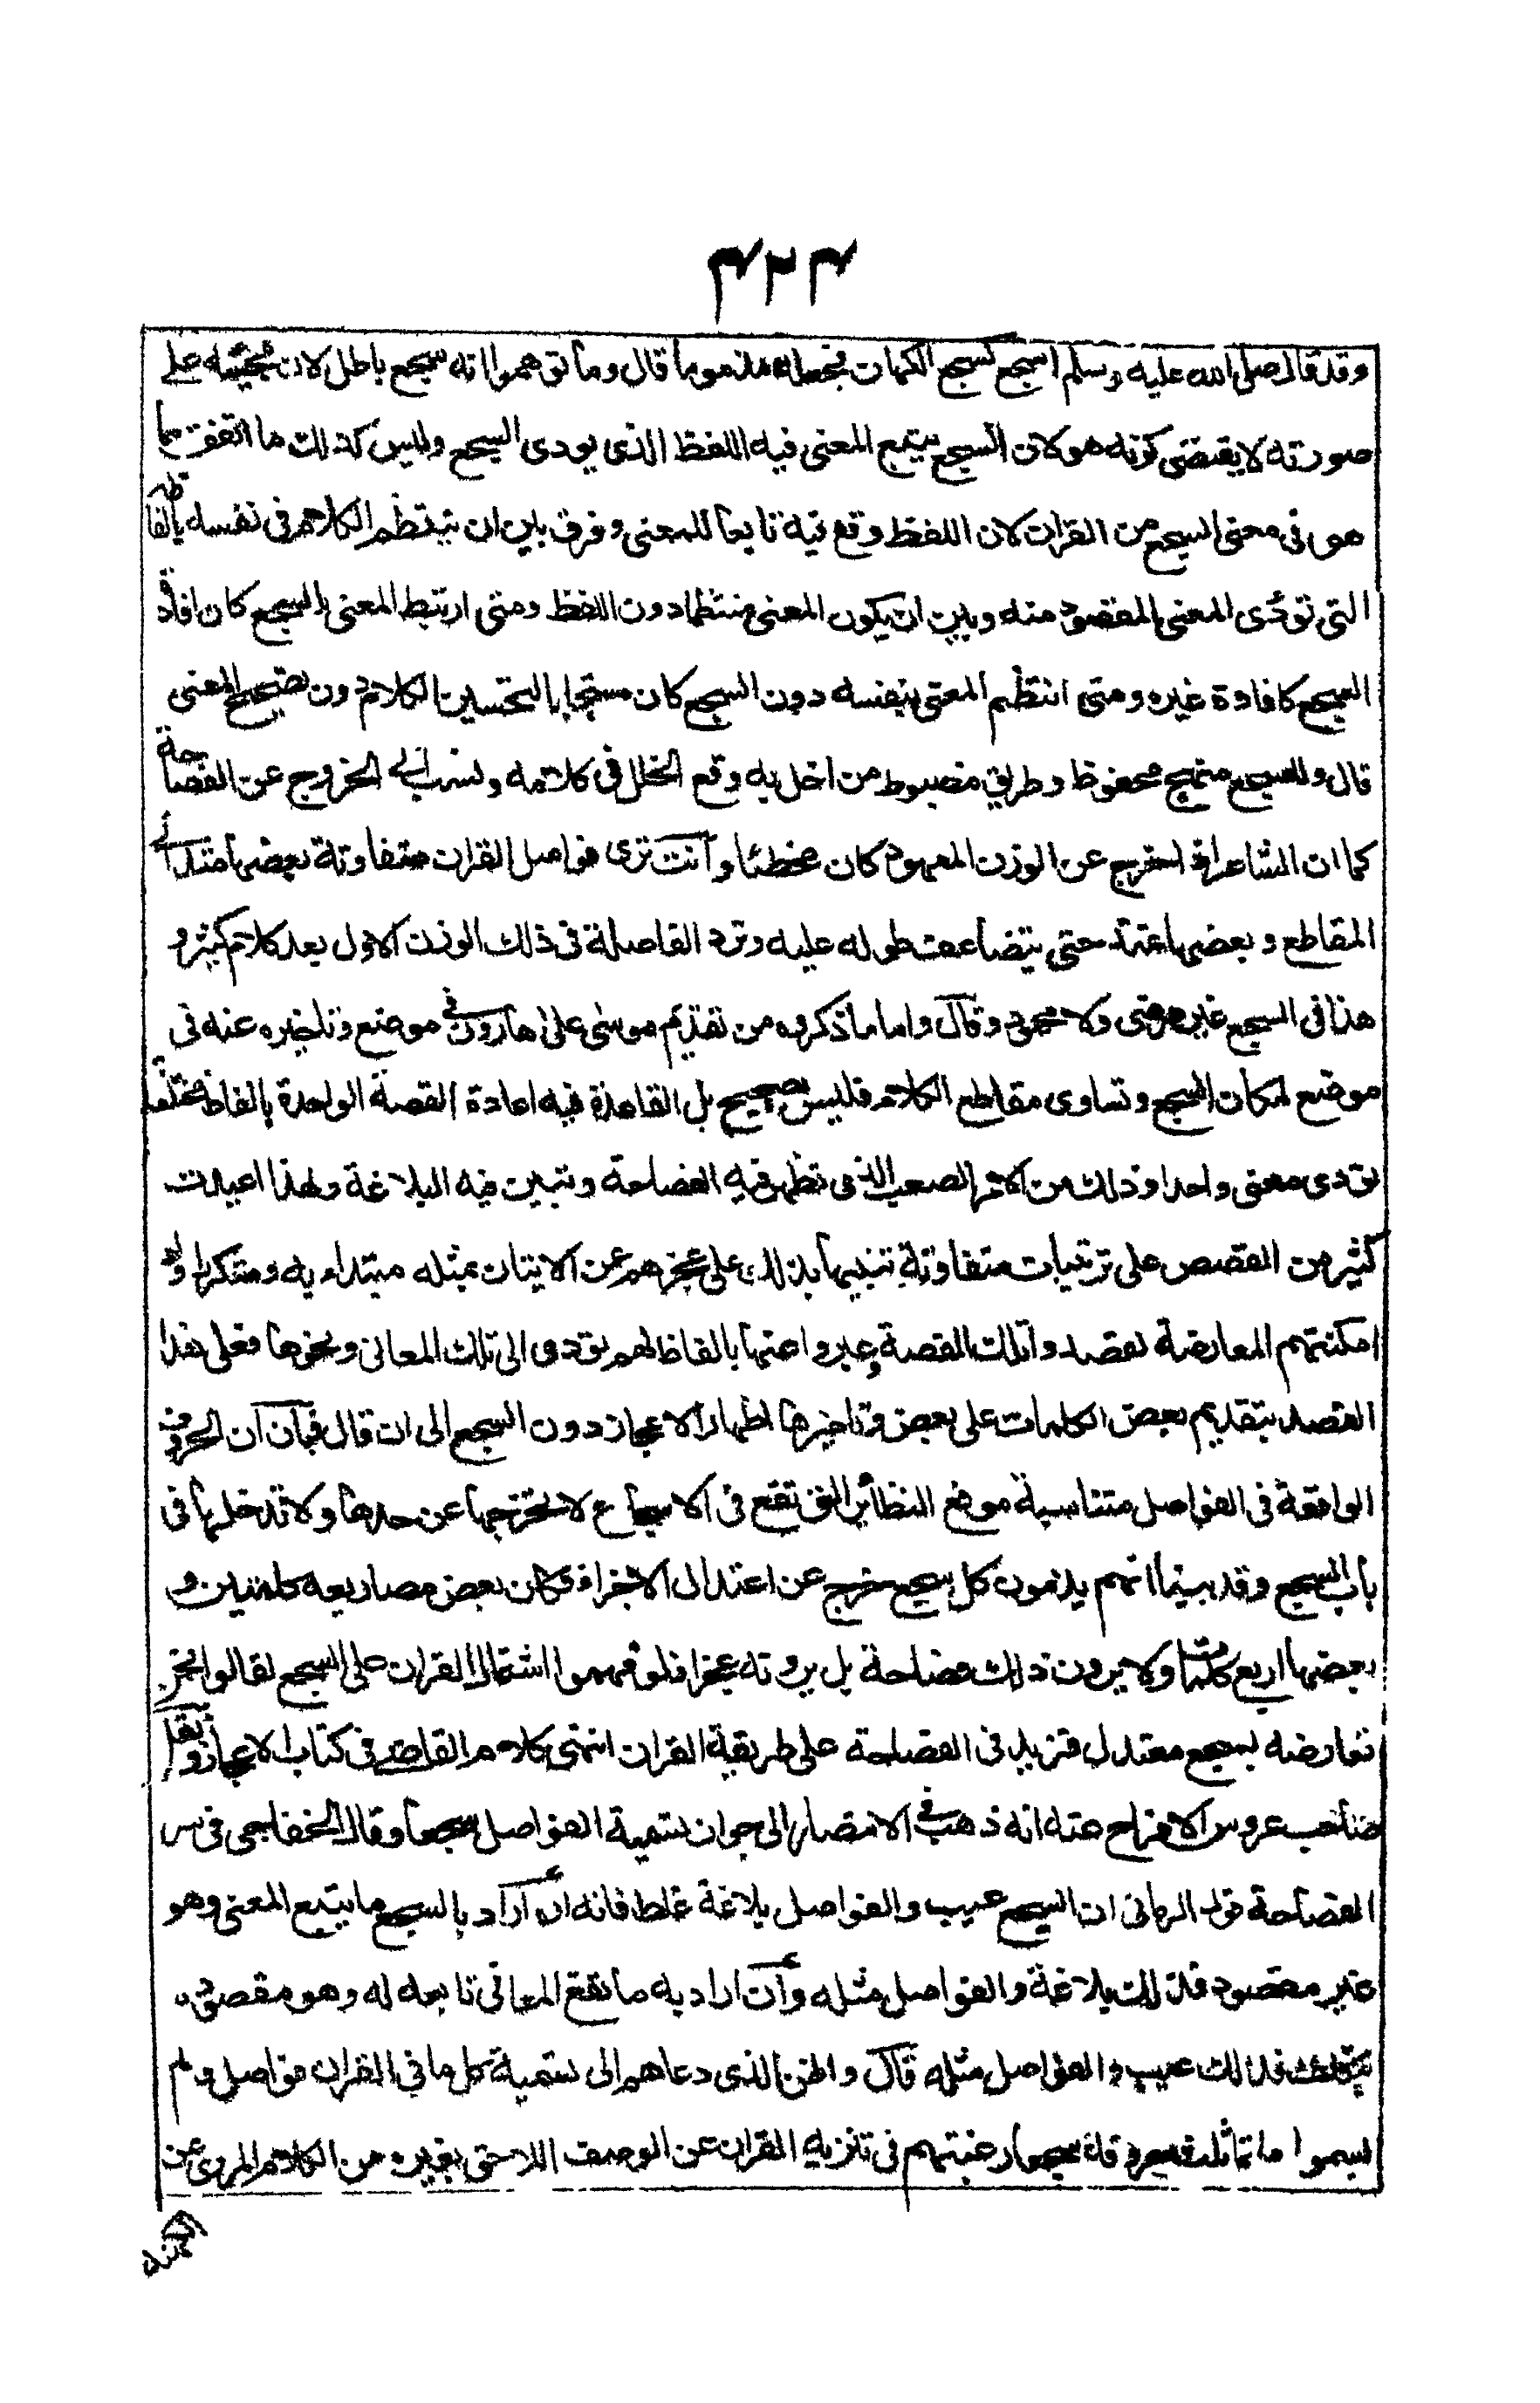 ٤٢٣
وقد قال صلى الله عليه وسلم اسجع كسجع الكهان فجعله مذموما قال وما توهموا انه سجع باطل لان مجيئه على
صورته لا يقتضى كونه هو لان السجع يتبع المعنى فيه اللفظ الذى يودى السجع وليس كذلك ما اتفق مما
هو فى معنى السجع من القران لان اللفظ وقع فيه تابعا للمعنى وفرق بين ان ينتظم الكلام فى نفسه بالفاظه
التى تؤدى المعنى المقصود منه وبين ان يكون المعنى منتظما دون اللفظ ومتى ارتبط المعنى بالسجع كان افادة
السجع كافادة غيره ومتى انتظم المعنى بنفسه دون السجع كان مستجلبا لتحسين الكلام دون تصحيح المعنى
قال وللسجع منهج محفوظ وطريق مضبوط من اخل به وقع الخلل فى كلامه ونسب الى الخروج عن الفصاحة
كما ان الشاعر اذا خرج عن الوزن المعهود كان مخطئا وانت ترى فواصل القران متفاوتة بعضها متدانى
المقاطع وبعضها يمتد حتى يتضاعف طوله عليه وترد الفاصلة فى ذلك الوزن الاول بعد كلام كثير و
هذا فى السجع غير مرضى ولا محمود وقال واما ما ذكروه من تقديم موسى على هارون فى موضع وتاخيره عنه فى
موضع لمكان السجع وتساوى مقاطع الكلام فليس بصحيح بل الفائدة فيه اعادة القصة الواحدة بالفاظ مختلفة
تؤدى معنى واحدا وذلك من الامر الصعب الذى تظهر فيه الفصاحة وتتبين فيه البلاغة ولهذا اعيدت
كثير من القصص على ترتيبات متفاوتة تنبيها بذلك على عجزهم عن الاتيان بمثله مبتداء به ومتكررا ولو
امكنتهم المعارضة لقصدوا تلك القصة وعبروا عنها بالفاظ لهم تؤدى الى تلك المعانى ونحوها فعلى هذا
القصد بتقديم بعض الكلمات على بعض وتاخيرها اظهار الاعجاز دون السجع الى ان قال فبان ان الحروف
الواقعة فى الفواصل متناسبة موضع النظائر التى تقع فى الاسجاع لا تخرجها عن حدها ولا تدخلها فى
باب السجع وقد بينا انهم يذمون كل سجع خرج عن اعتدال الاجزاء فكان بعض مصاريعه كلمتين و
بعضها اربع كلمات ولا يرون ذلك فصاحة بل يرونه عجزا فلو فهموا اشتمال القران على السجع لقالوا نحن
نعارضه بسجع معتدل فنزيد فى الفصاحة على طريقة القران انتهى كلام القاضى فى كتاب الاعجاز ونقل
صاحب عروس الافراح عنه انه ذهب فى الانتصار الى جواز تسمية الفواصل سجعا وقال الخفاجى فى سر
الفصاحة قول الرمانى ان السجع عيب والفواصل بلاغة غلط فانه ان اراد بالسجع ما يتبع المعنى وهو
غير مقصود فذلك بلاغة والفواصل مثله وان اراد به ما تقع المعانى تابعة له وهو مقصود
متكلف فذلك عيب والفواصل مثله قال واظن الذى دعاهم الى تسمية كل ما فى القران فواصل ولم
يسموا ما تماثلت حروفه سجعا رغبتهم فى تنزيه القران عن الوصف اللاحق بغيره من الكلام المروى عن
الكهنة